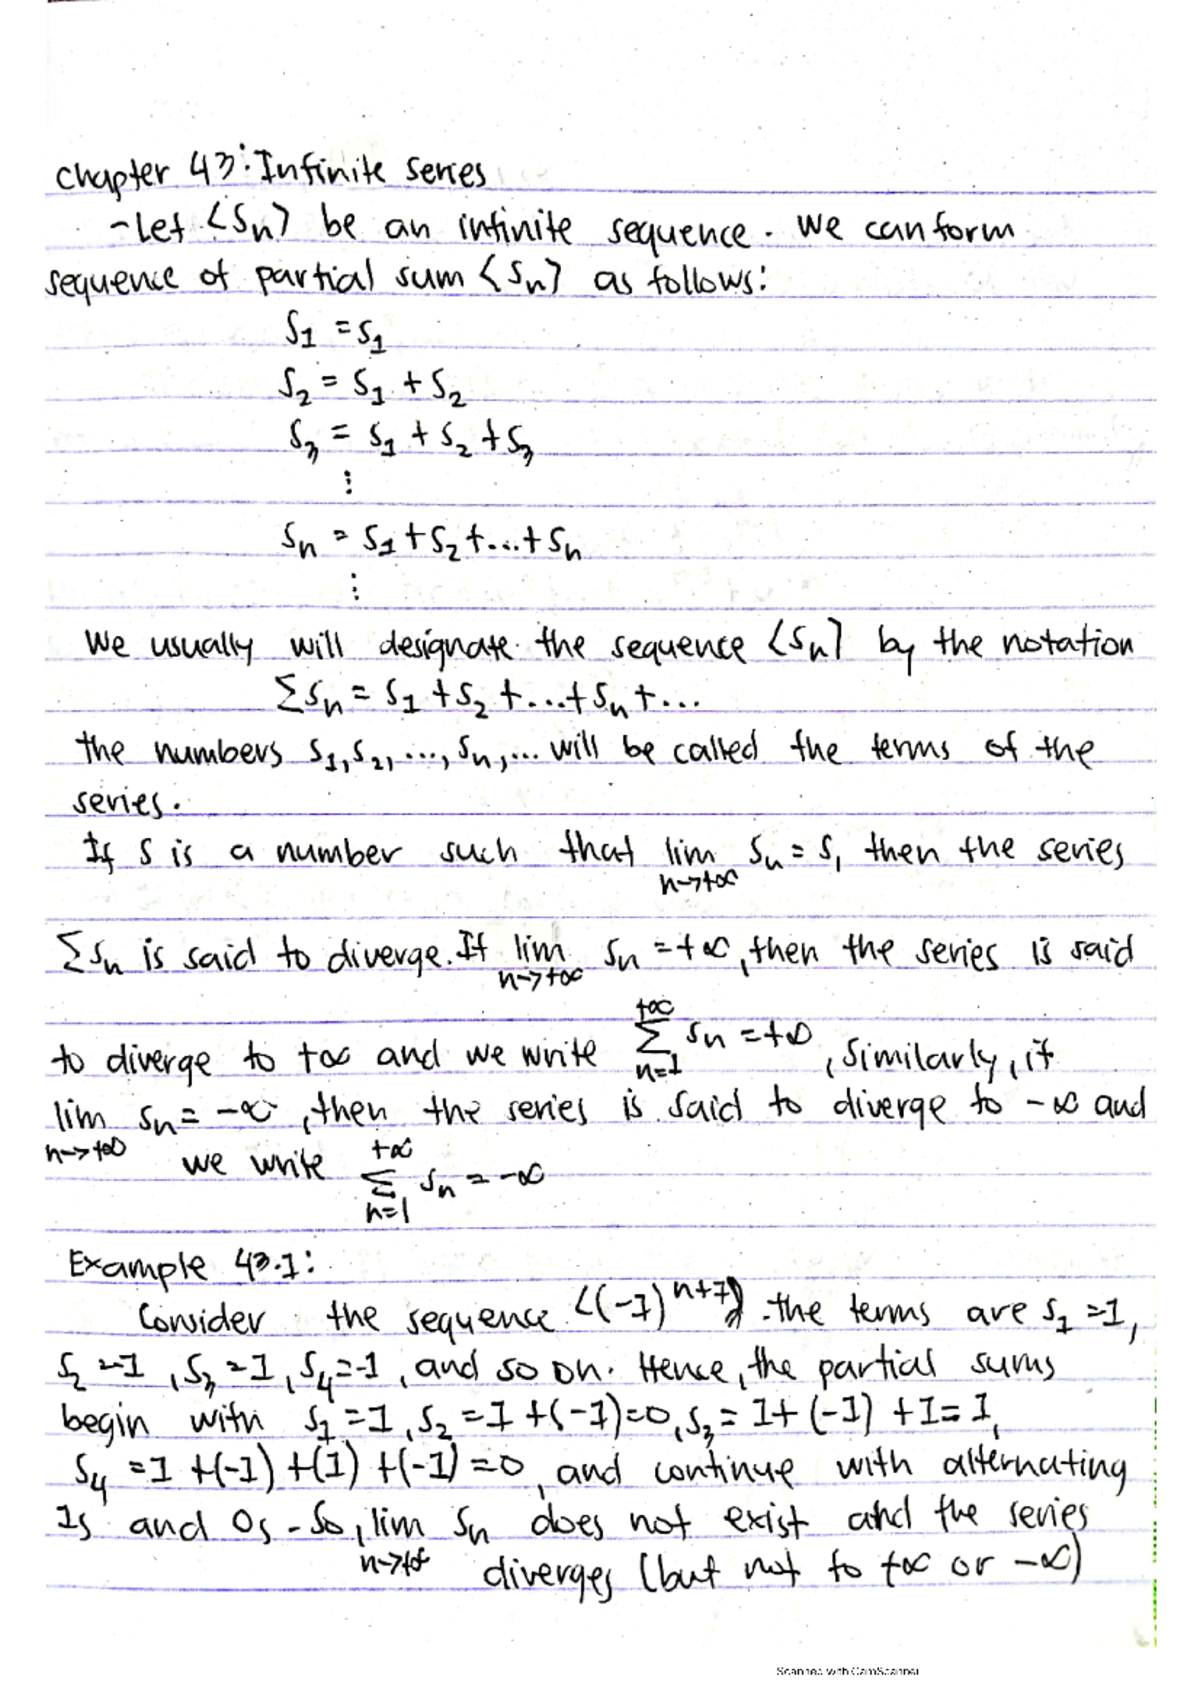 Chapter 43: Infinite Series
- Let ⟨Sn⟩ be an infinite sequence. We can form
sequence of partial sum ⟨Sn⟩ as follows:
S1 = s1
S2 = s1 + s2
S3 = s1 + s2 + s3
⋮
Sn = s1 + s2 + ... + sn
⋮
We usually will designate the sequence ⟨Sn⟩ by the notation
∑sn = s1 + s2 + ... + sn + ...
the numbers s1, s2, ..., sn, ... will be called the terms of the
series.
If S is a number such that lim n→+∞ Sn = S, then the series
∑sn is said to diverge. If lim n→+∞ Sn = +∞, then the series is said
to diverge to +∞ and we write +∞ ∑ n=1 sn = +∞, Similarly, if
lim n→+∞ Sn = -∞, then the series is said to diverge to -∞ and
we write +∞ ∑ n=1 sn = -∞
Example 43.1:
Consider the sequence ⟨(-1)^n+1⟩. the terms are s1 = 1,
s2 = -1, s3 = 1, s4 = -1, and so on. Hence, the partial sums
begin with S1 = 1, S2 = 1 + (-1) = 0, S3 = 1 + (-1) + 1 = 1,
S4 = 1 + (-1) + (1) + (-1) = 0, and continue with alternating
1s and 0s. So, lim n→+∞ Sn does not exist and the series
diverges (but not to +∞ or -∞)
Scanned with CamScanner